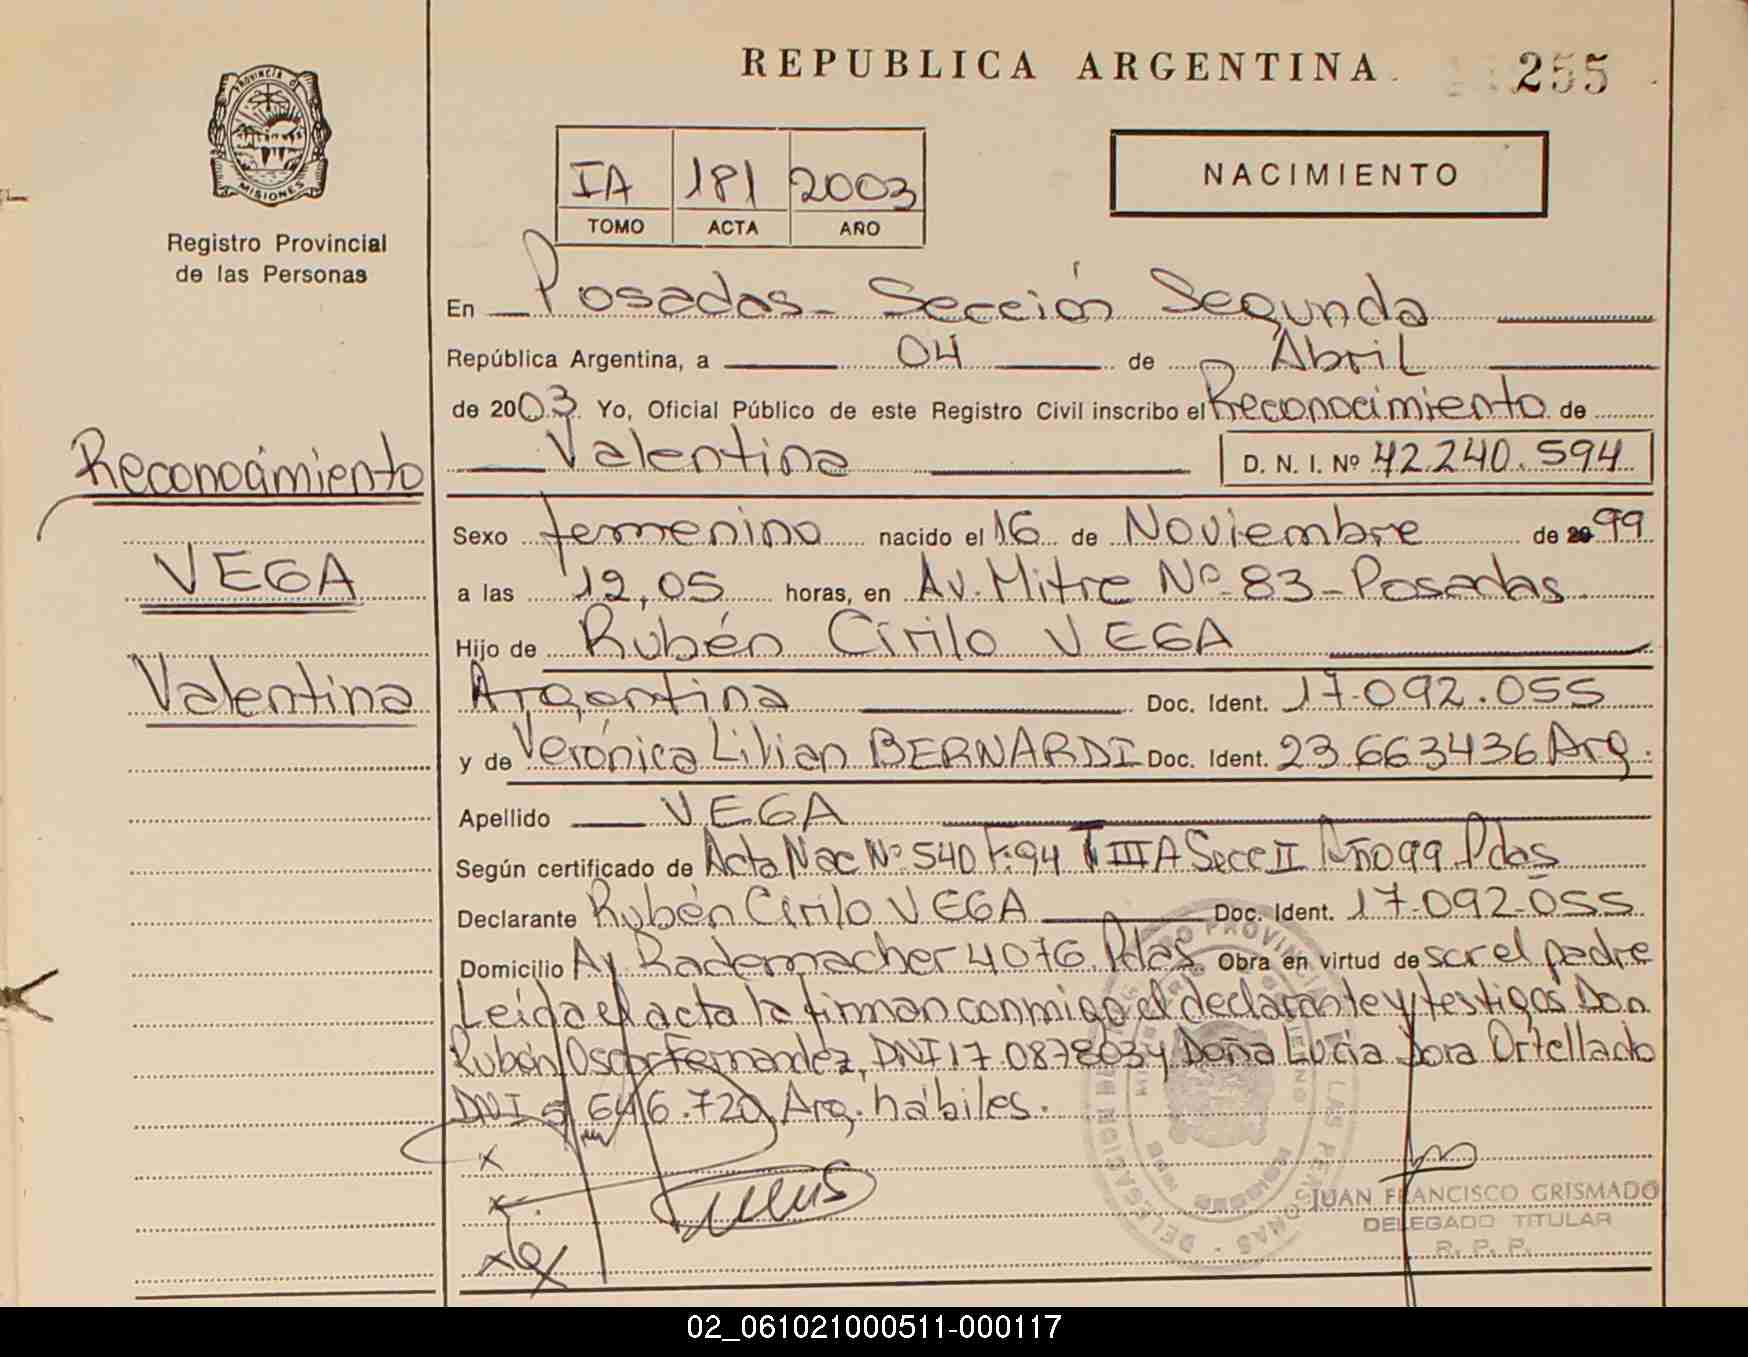 REPUBLICA ARGENTINA
255
PROVINCIA DE MISIONES
Registro Provincial
de las Personas
IA 181 2003
TOMO ACTA AÑO
NACIMIENTO
En Posadas - Sección Segunda
República Argentina, a 04 de Abril
de 2003. Yo, Oficial Público de este Registro Civil inscribo el Reconocimiento de
Valentina D. N. I. Nº 42.240.594
Reconocimiento
VEGA
Valentina
Sexo femenino nacido el 16 de Noviembre de 99
a las 12,05 horas, en Av. Mitre Nº 83 - Posadas
Hijo de Rubén Cirilo VEGA
Argentina Doc. Ident. 17.092.055
y de Verónica Lilian BERNARDI Doc. Ident. 23.663436 Arg.
Apellido VEGA
Según certificado de Acta Nac Nº 540 F:94 T IIIA Secc II Año 99 Pdas
Declarante Rubén Cirilo VEGA Doc. Ident. 17.092.055
Domicilio Av. Rademacher 4076 Pdas Obra en virtud de ser el padre
Leída el acta la firman conmigo el declarante y testigos Don
Rubén Oscar Fernandez, DNI 17.0878034 Doña Lucia Dora Ortellado
DNI 5.646.720 Arg. hábiles.
JUAN FRANCISCO GRISMADO
DELEGADO TITULAR
R. P. P.
02_061021000511-000117